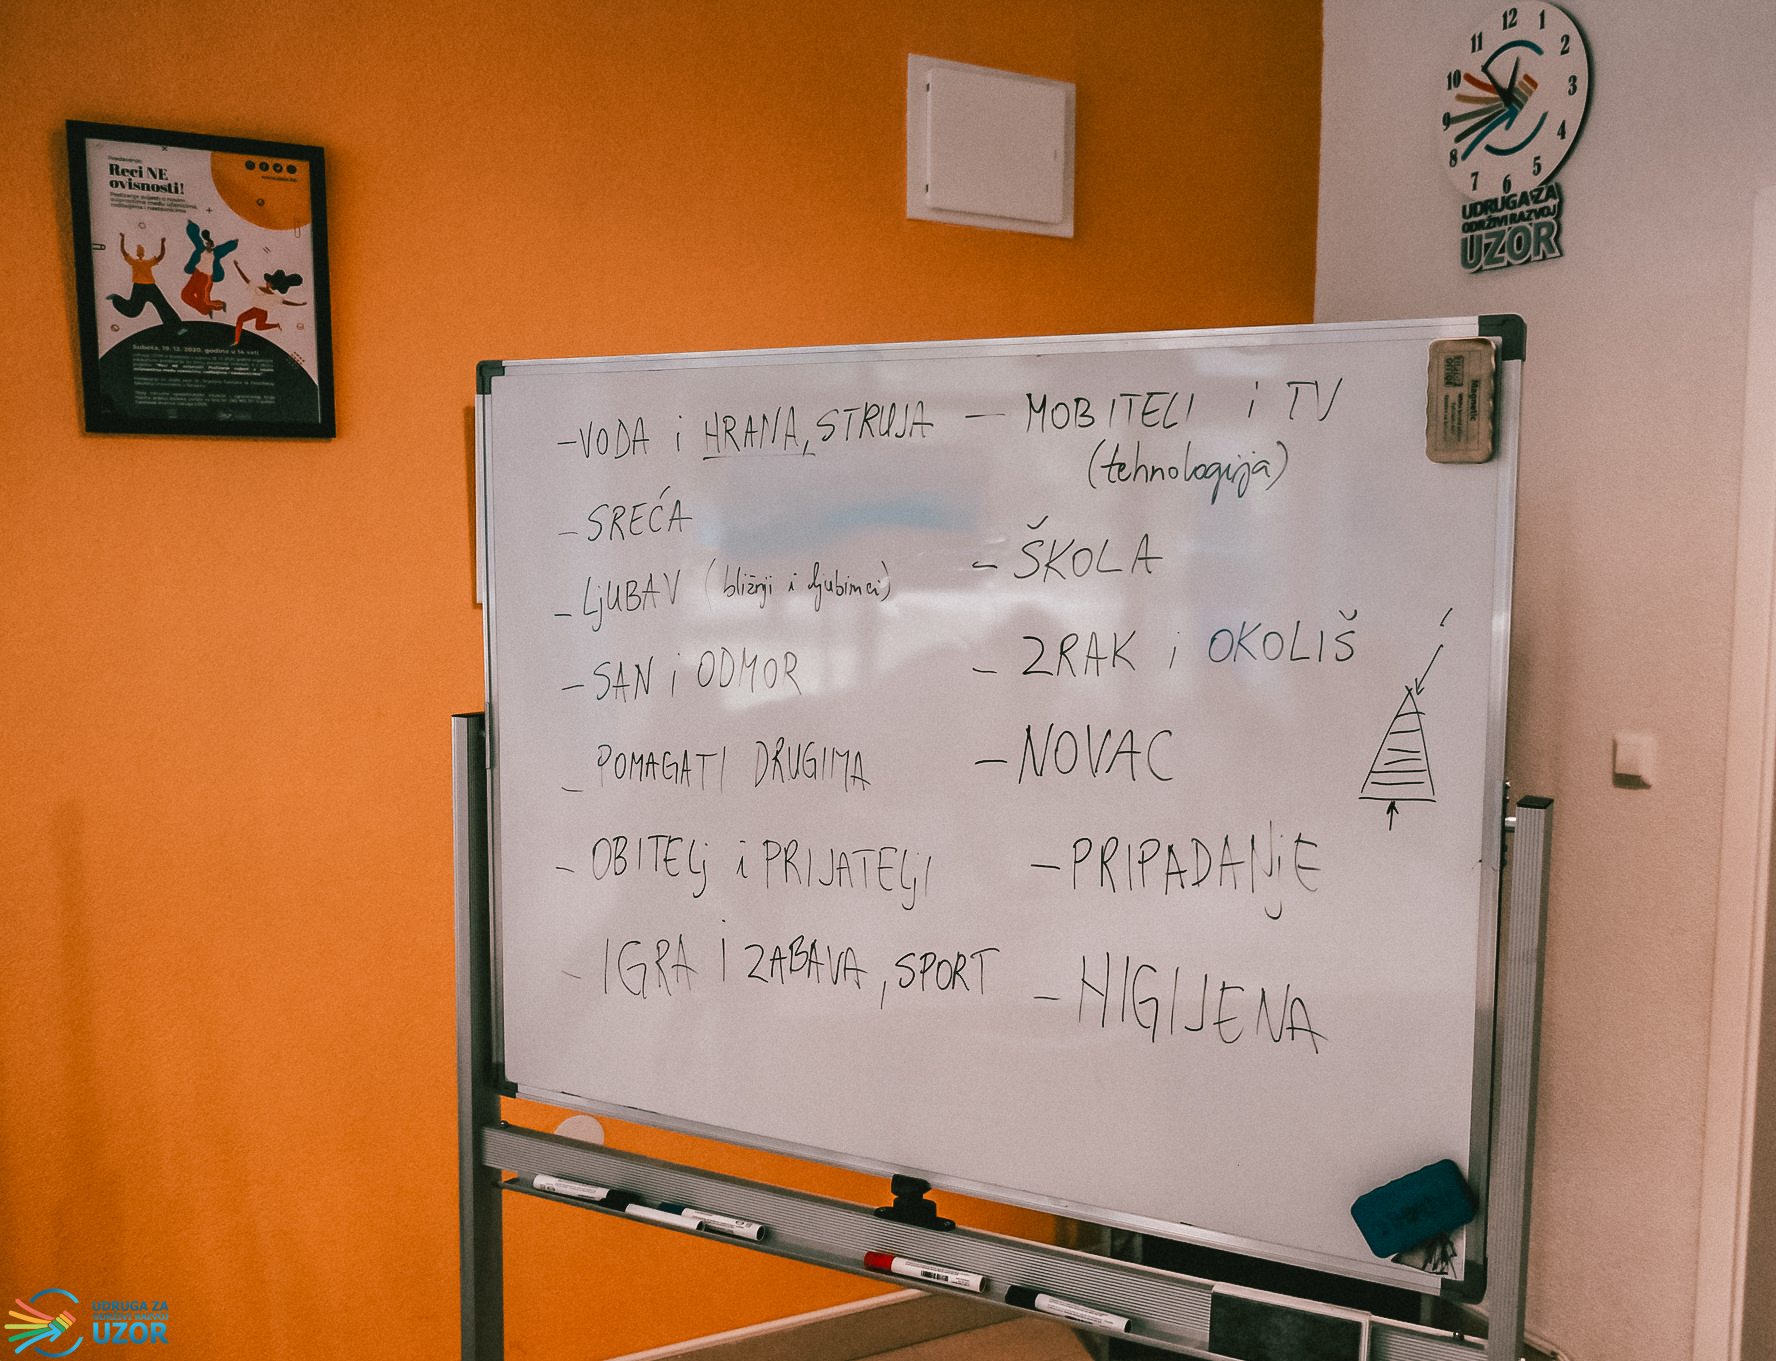 Predavanje:
Reci NE
ovisnosti!
Subota, 19. 12. 2020. godine u 14 sati
12
1
2
3
4
5
6
7
8
9
10
11
UDRUGA ZA
ODRŽIVI RAZVOJ
UZOR
Magnetic
- VODA i HRANA, STRUJA
- SREĆA
- LjUBAV (bližnji i ljubimci)
- SAN i ODMOR
- POMAGATI DRUGIMA
- OBITELj i PRIJATELjI
- IGRA I ZABAVA, SPORT
- MOBITELI i TV
(tehnologija)
- ŠKOLA
- ZRAK i OKOLIŠ
- NOVAC
- PRIPADANjE
- HIGIJENA
UDRUGA ZA
ODRŽIVI RAZVOJ
UZOR